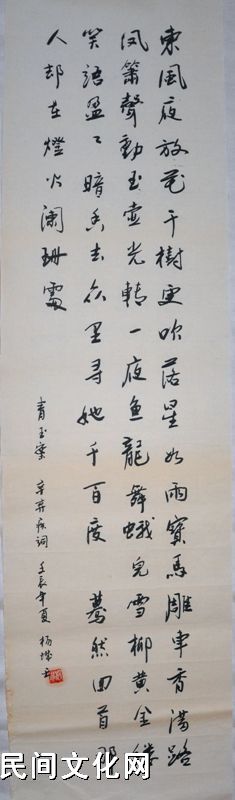 東風夜放花千樹更吹落星如雨寶馬雕車香滿路
凤簫聲動玉壺光轉一夜鱼龍舞蛾兒雪柳黄金缕
笑語盈々暗香去众里寻她千百度蓦然回首那
人却在燈火阑珊處
青玉案 辛弃疾词 壬辰年夏 杨
民间文化网